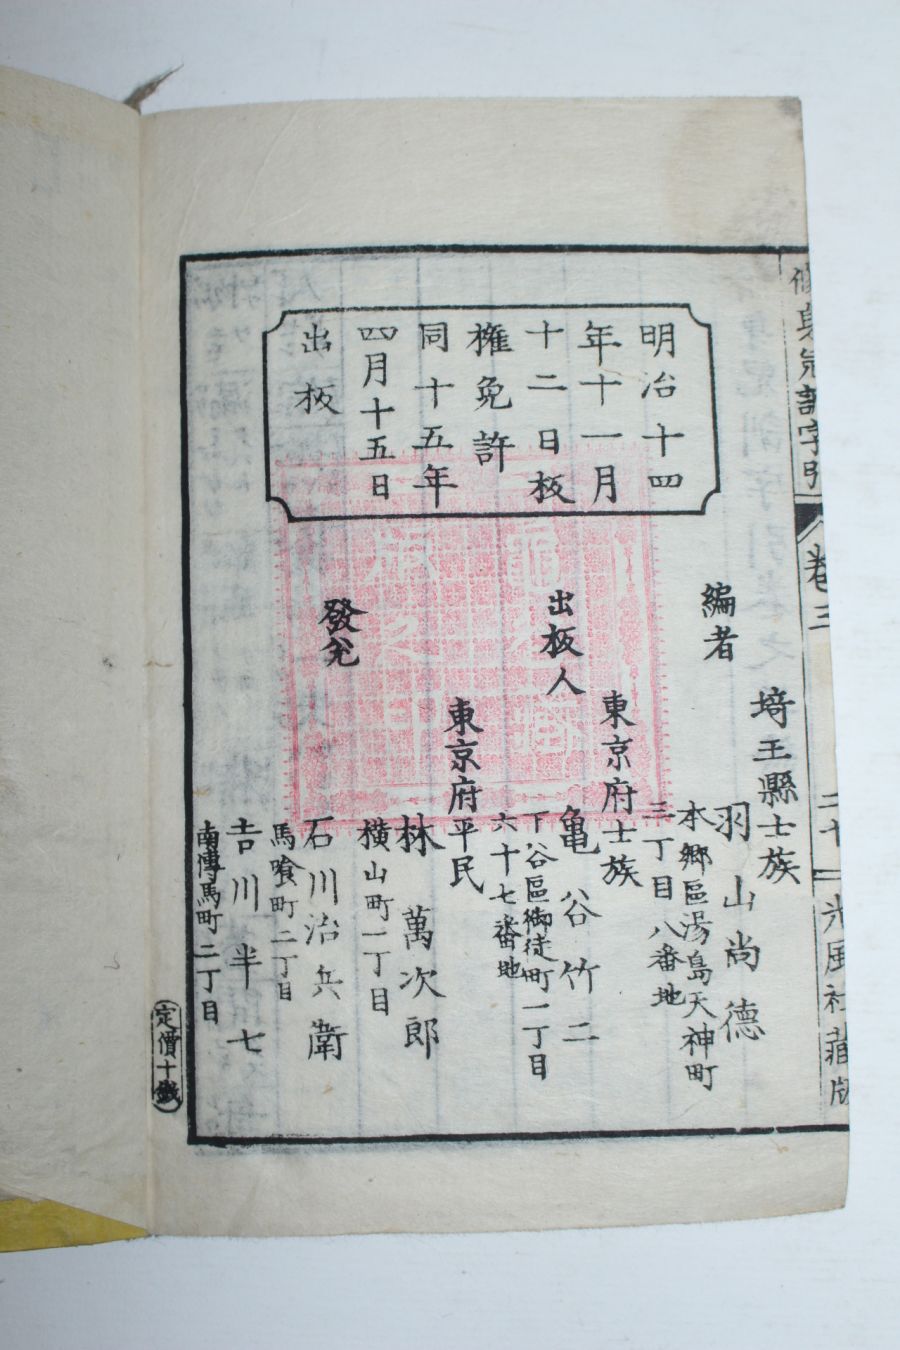 修身兒訓字引
卷三
二十
光風社藏版
明治十四
年十一月
十二日板
權免許
同十五年
四月十五日
出板
編者
埼玉縣士族
羽山尚德
本郷區湯島天神町
三丁目八番地
出板人
東京府士族
亀谷竹二
下谷區御徒町一丁目
六十七番地
發兌
東京府平民
林萬次郎
横山町一丁目
石川治兵衛
馬喰町二丁目
吉川半七
南傳馬町二丁目
定價十錢